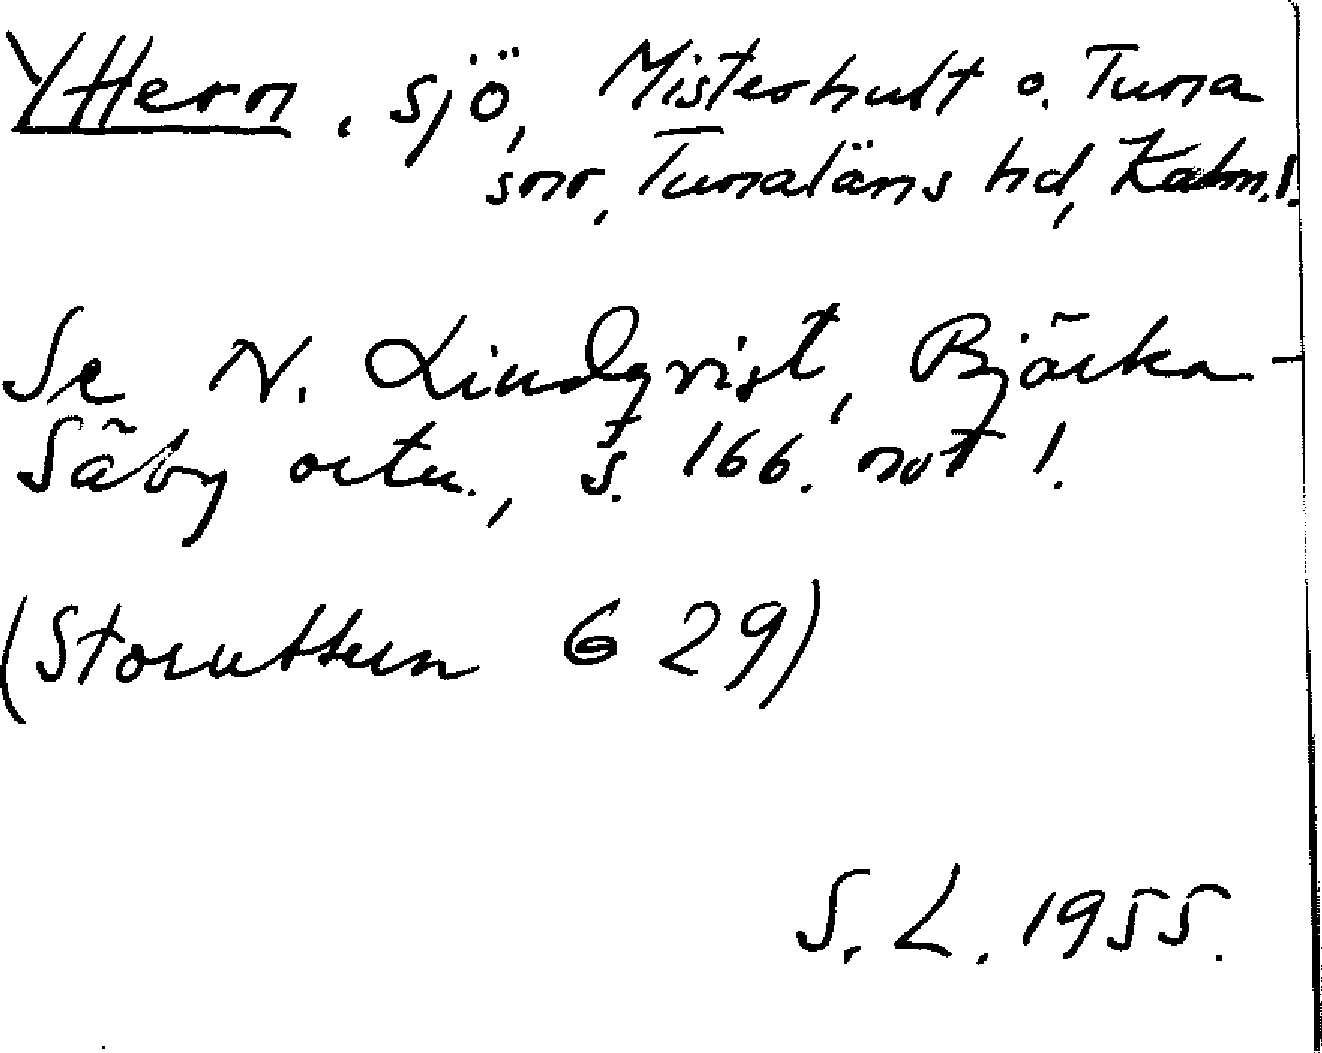 Yttern, sjö, Misterhult o. Tuna
snr, Tunaläns hd, Kalm. l.
Se N. Lindqvist, Bjärka-
Säby ortn., s. 166. not !
(Storuttern G 29)
S. L. 1955.